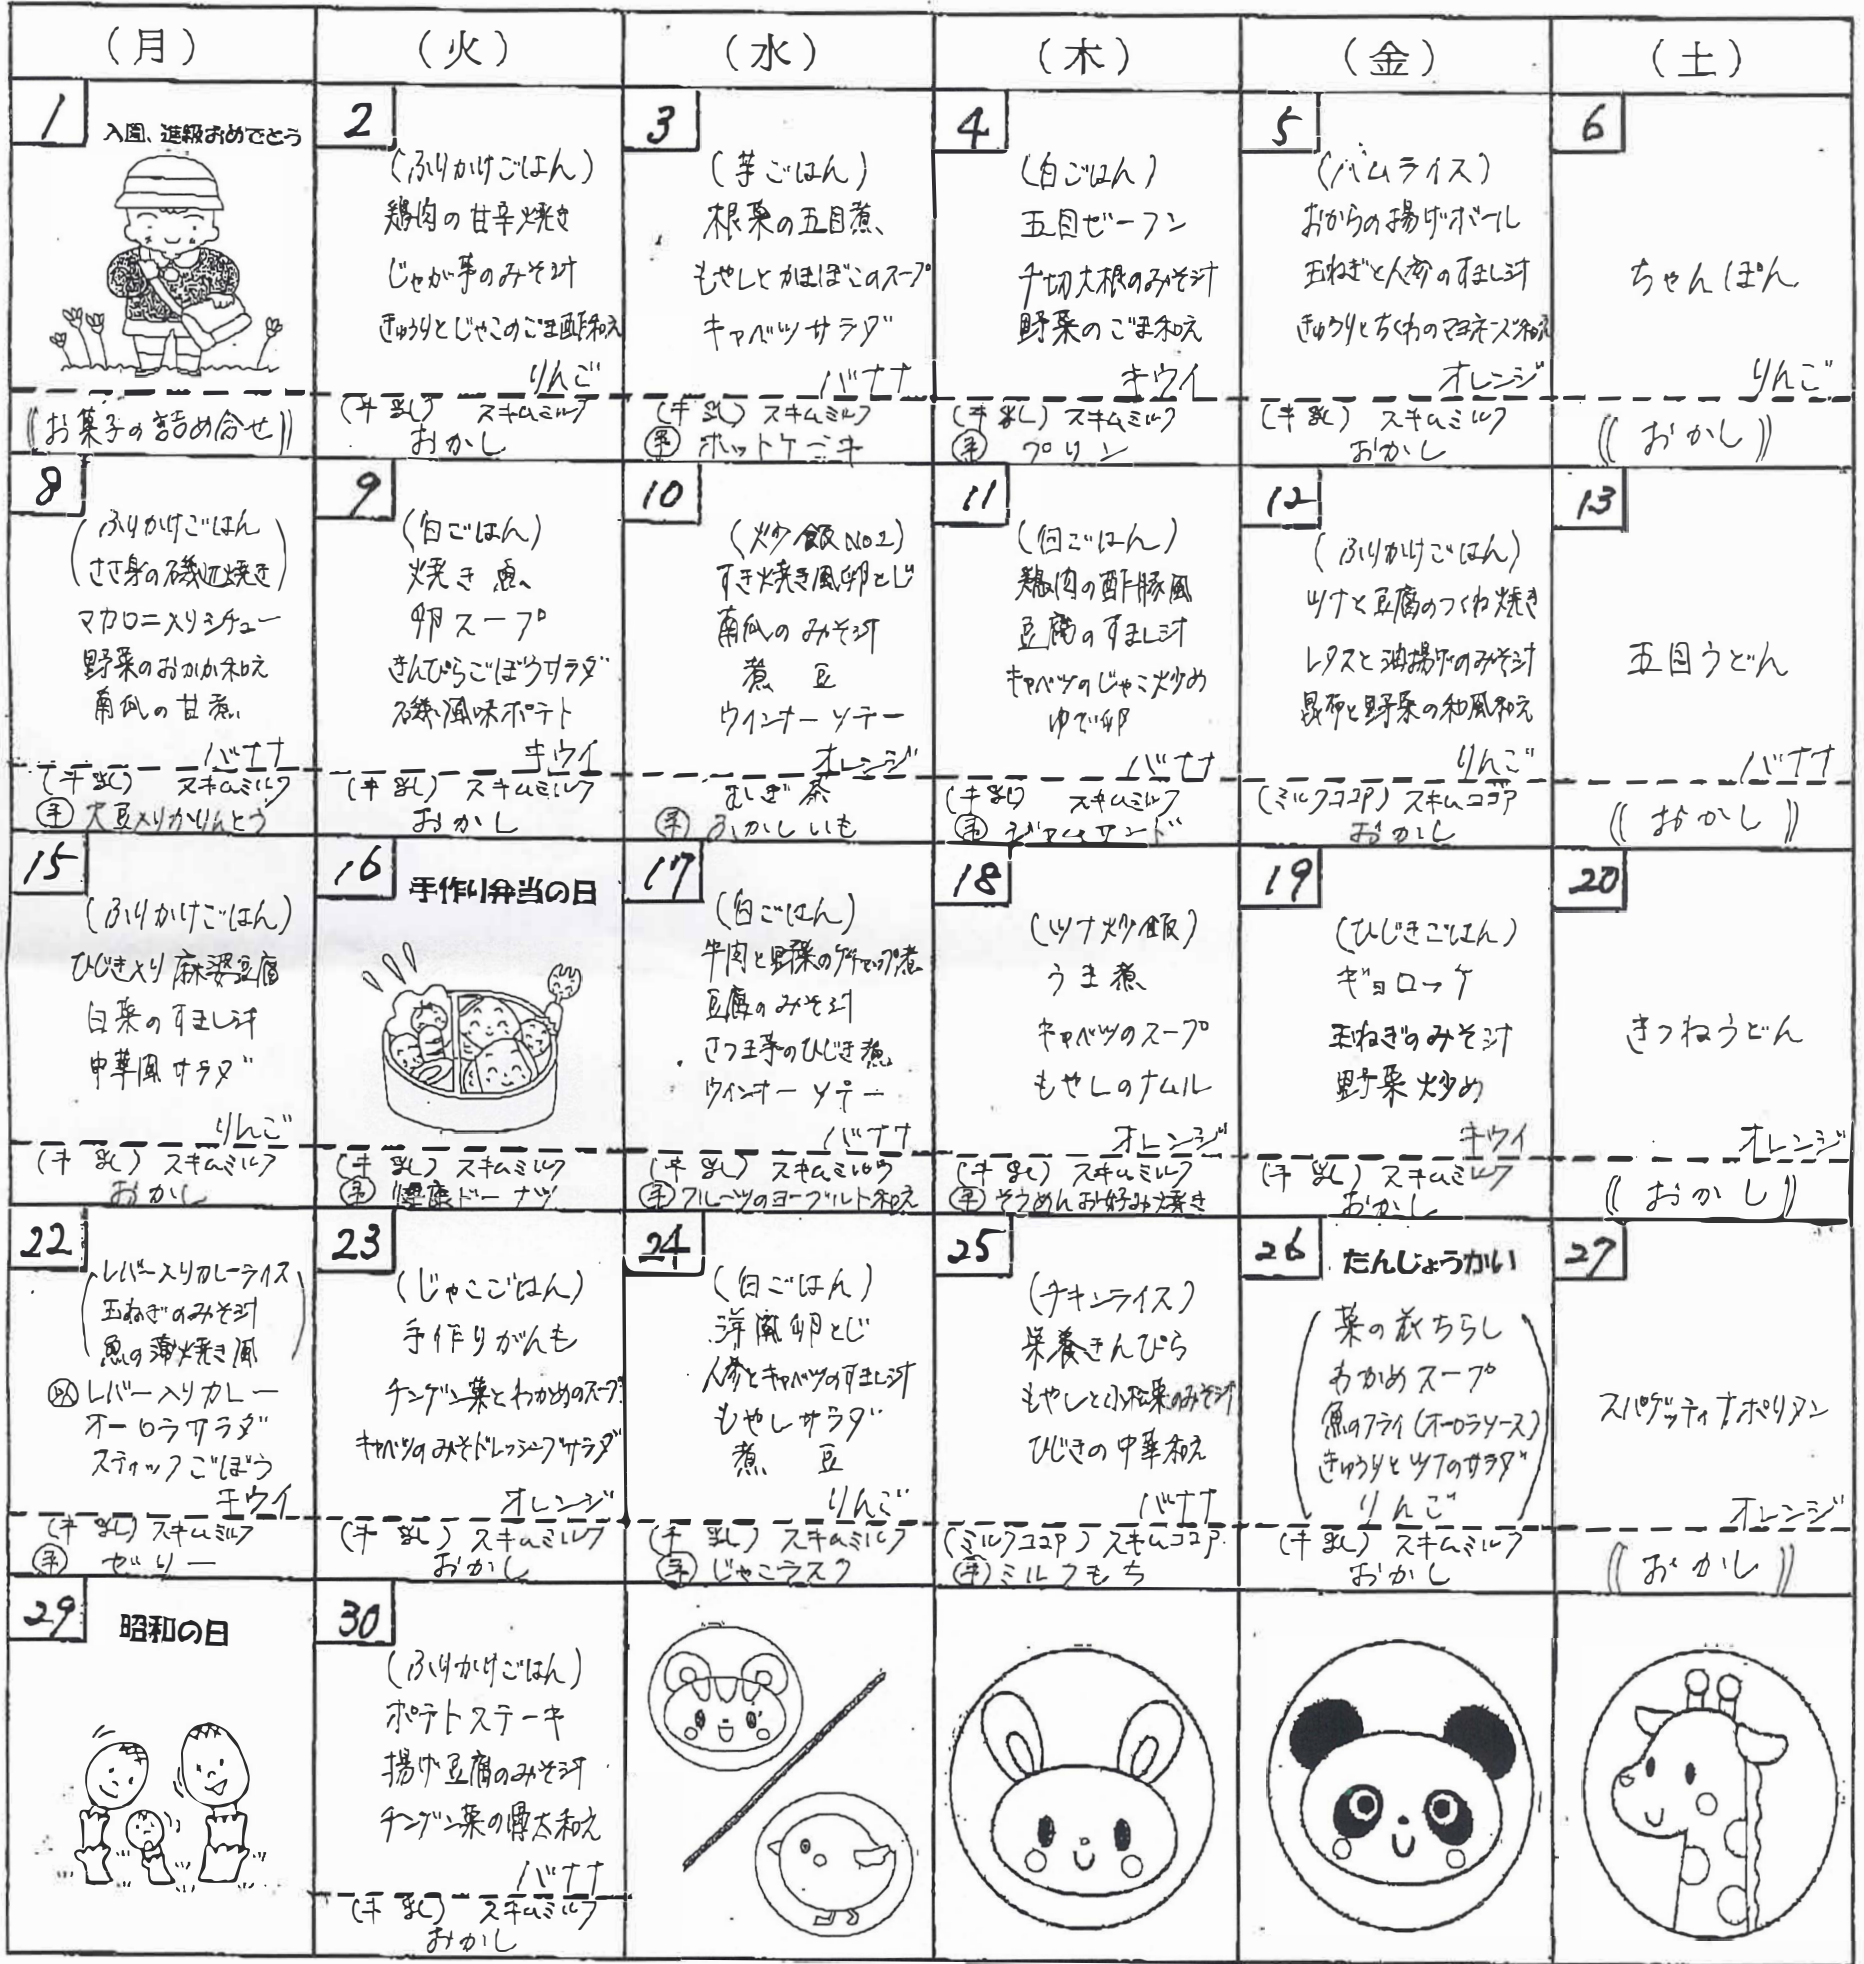 (月)
(火)
(水)
(木)
(金)
(土)
1
入園、進級おめでとう
((お菓子の詰め合せ))
2
(ふりかけごはん)
鶏肉の甘辛焼き
じゃが芋のみそ汁
きゅうりとじゃこのごま酢和え
りんご
(牛乳) スキムミルク
おかし
3
(芋ごはん)
根菜の五目煮
もやしとかまぼこのスープ
キャベツサラダ
バナナ
(牛乳) スキムミルク
手 ホットケーキ
4
(白ごはん)
五目ビーフン
千切大根のみそ汁
野菜のごま和え
キウイ
(牛乳) スキムミルク
手 プリン
5
(ハムライス)
おからの揚げボール
玉ねぎと人参のすまし汁
きゅうりとちくわのマヨネーズ和え
オレンジ
(牛乳) スキムミルク
おかし
6
ちゃんぽん
りんご
((おかし))
8
(ふりかけごはん
ささ身の磯辺焼き)
マカロニ入りシチュー
野菜のおかか和え
南瓜の甘煮
バナナ
(牛乳) スキムミルク
手 大豆入りかりんとう
9
(白ごはん)
焼き魚
卵スープ
きんぴらごぼうサラダ
磯風味ポテト
キウイ
(牛乳) スキムミルク
おかし
10
(炒飯 No2)
すき焼き風卵とじ
南瓜のみそ汁
煮豆
ウインナーソテー
オレンジ
むぎ茶
手 ふかしいも
11
(白ごはん)
鶏肉の酢豚風
豆腐のすまし汁
キャベツのじゃこ炒め
ゆで卵
バナナ
(牛乳) スキムミルク
手 ジャムサンド
12
(ふりかけごはん)
ツナと豆腐のつくね焼き
レタスと油揚げのみそ汁
昆布と野菜の和風和え
りんご
(ミルクココア) スキムココア
おかし
13
五目うどん
バナナ
((おかし))
15
(ふりかけごはん)
ひじき入り麻婆豆腐
白菜のすまし汁
中華風サラダ
りんご
(牛乳) スキムミルク
おかし
16
手作り弁当の日
(牛乳) スキムミルク
手 健康ドーナツ
17
(白ごはん)
牛肉と野菜のケチャップ煮
豆腐のみそ汁
さつま芋のひじき煮
ウインナーソテー
バナナ
(牛乳) スキムミルク
手 フルーツのヨーグルト和え
18
(ツナ炒飯)
うま煮
キャベツのスープ
もやしのナムル
オレンジ
(牛乳) スキムミルク
手 そうめんお好み焼き
19
(ひじきごはん)
ギョロッケ
玉ねぎのみそ汁
野菜炒め
キウイ
(牛乳) スキムミルク
おかし
20
きつねうどん
オレンジ
((おかし))
22
(レバー入りカレーライス
玉ねぎのみそ汁
魚の蒲焼き風)
レバー入りカレー
オーロラサラダ
スティックごぼう
キウイ
(牛乳) スキムミルク
手 ゼリー
23
(じゃこごはん)
手作りがんも
チンゲン菜とわかめのスープ
キャベツのみそドレッシングサラダ
オレンジ
(牛乳) スキムミルク
おかし
24
(白ごはん)
洋風卵とじ
人参とキャベツのすまし汁
もやしサラダ
煮豆
りんご
(牛乳) スキムミルク
手 じゃこラスク
25
(チキンライス)
栄養きんぴら
もやしと小松菜のみそ汁
ひじきの中華和え
バナナ
(ミルクココア) スキムココア
手 ミルクもち
26
たんじょうかい
(菜の花ちらし
わかめスープ
魚のフライ(オーロラソース)
きゅうりとツナのサラダ
りんご)
(牛乳) スキムミルク
おかし
27
スパゲッティナポリタン
オレンジ
((おかし))
29
昭和の日
30
(ふりかけごはん)
ポテトステーキ
揚げ豆腐のみそ汁
チンゲン菜の骨太和え
バナナ
(牛乳) スキムミルク
おかし